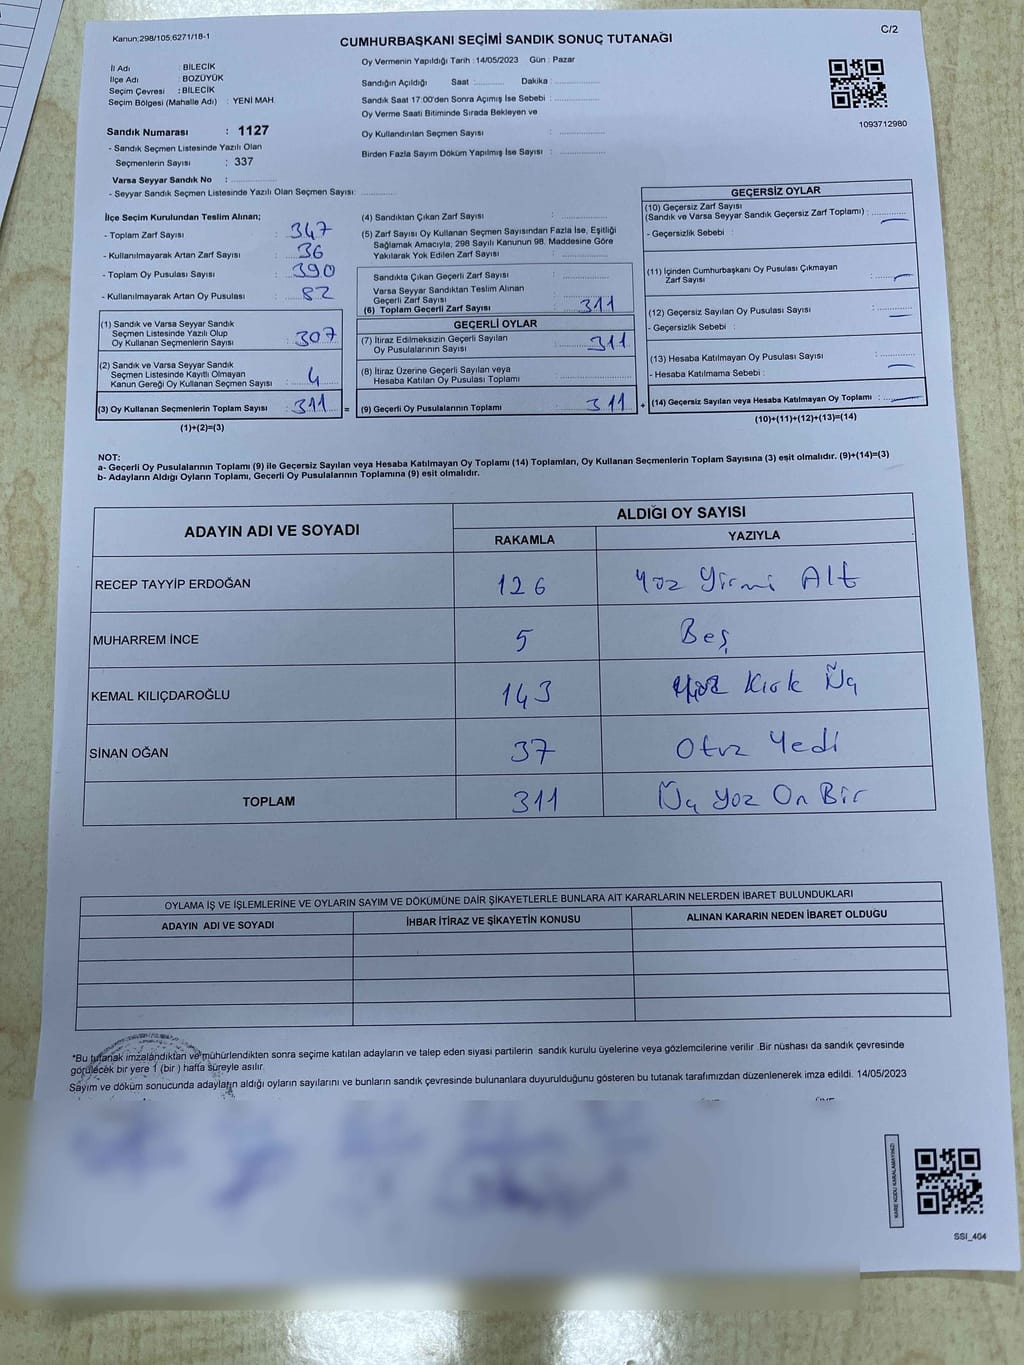 Kanun:298/105,6271/18-1
C/2
CUMHURBAŞKANI SEÇİMİ SANDIK SONUÇ TUTANAĞI
İl Adı : BİLECİK
İlçe Adı : BOZÜYÜK
Seçim Çevresi : BİLECİK
Seçim Bölgesi (Mahalle Adı) : YENİ MAH.
Sandık Numarası : 1127
- Sandık Seçmen Listesinde Yazılı Olan
Seçmenlerin Sayısı : 337
Varsa Seyyar Sandık No :
- Seyyar Sandık Seçmen Listesinde Yazılı Olan Seçmen Sayısı:
Oy Vermenin Yapıldığı Tarih :14/05/2023 Gün : Pazar
Sandığın Açıldığı Saat : Dakika :
Sandık Saat 17:00'den Sonra Açımış İse Sebebi :
Oy Verme Saati Bitiminde Sırada Bekleyen ve
Oy Kullandırılan Seçmen Sayısı :
Birden Fazla Sayım Döküm Yapılmış İse Sayısı :
1093712980
İlçe Seçim Kurulundan Teslim Alınan;
- Toplam Zarf Sayısı : 347
- Kullanılmayarak Artan Zarf Sayısı : 36
- Toplam Oy Pusulası Sayısı : 390
- Kullanılmayarak Artan Oy Pusulası : 82
(1) Sandık ve Varsa Seyyar Sandık
Seçmen Listesinde Yazılı Olup
Oy Kullanan Seçmenlerin Sayısı : 307
(2) Sandık ve Varsa Seyyar Sandık
Seçmen Listesinde Kayıtlı Olmayan
Kanun Gereği Oy Kullanan Seçmen Sayısı : 4
(3) Oy Kullanan Seçmenlerin Toplam Sayısı : 311 =
(1)+(2)=(3)
(4) Sandıktan Çıkan Zarf Sayısı :
(5) Zarf Sayısı Oy Kullanan Seçmen Sayısından Fazla İse, Eşitliği
Sağlamak Amacıyla; 298 Sayılı Kanunun 98. Maddesine Göre
Yakılarak Yok Edilen Zarf Sayısı :
Sandıkta Çıkan Geçerli Zarf Sayısı :
Varsa Seyyar Sandıktan Teslim Alınan
Geçerli Zarf Sayısı :
(6) Toplam Geçerli Zarf Sayısı : 311
GEÇERLİ OYLAR
(7) İtiraz Edilmeksizin Geçerli Sayılan
Oy Pusulalarının Sayısı : 311
(8) İtiraz Üzerine Geçerli Sayılan veya
Hesaba Katılan Oy Pusulası Toplamı :
(9) Geçerli Oy Pusulalarının Toplamı : 311 +
GEÇERSİZ OYLAR
(10) Geçersiz Zarf Sayısı
(Sandık ve Varsa Seyyar Sandık Geçersiz Zarf Toplamı) : —
- Geçersizlik Sebebi :
(11) İçinden Cumhurbaşkanı Oy Pusulası Çıkmayan
Zarf Sayısı : —
(12) Geçersiz Sayılan Oy Pusulası Sayısı : —
- Geçersizlik Sebebi :
(13) Hesaba Katılmayan Oy Pusulası Sayısı : —
- Hesaba Katılmama Sebebi :
(14) Geçersiz Sayılan veya Hesaba Katılmayan Oy Toplamı : —
(10)+(11)+(12)+(13)=(14)
NOT:
a- Geçerli Oy Pusulalarının Toplamı (9) ile Geçersiz Sayılan veya Hesaba Katılmayan Oy Toplamı (14) Toplamları, Oy Kullanan Seçmenlerin Toplam Sayısına (3) eşit olmalıdır. (9)+(14)=(3)
b- Adayların Aldığı Oyların Toplamı, Geçerli Oy Pusulalarının Toplamına (9) eşit olmalıdır.
ADAYIN ADI VE SOYADI
ALDIĞI OY SAYISI
RAKAMLA YAZIYLA
RECEP TAYYİP ERDOĞAN 126 Yüz Yirmi Altı
MUHARREM İNCE 5 Beş
KEMAL KILIÇDAROĞLU 143 Yüz Kırk Üç
SİNAN OĞAN 37 Otuz Yedi
TOPLAM 311 Üç Yüz On Bir
OYLAMA İŞ VE İŞLEMLERİNE VE OYLARIN SAYIM VE DÖKÜMÜNE DAİR ŞİKAYETLERLE BUNLARA AİT KARARLARIN NELERDEN İBARET BULUNDUKLARI
ADAYIN ADI VE SOYADI İHBAR İTİRAZ VE ŞİKAYETİN KONUSU ALINAN KARARIN NEDEN İBARET OLDUĞU
*Bu tutanak imzalandıktan ve mühürlendikten sonra seçime katılan adayların ve talep eden siyasi partilerin sandık kurulu üyelerine veya gözlemcilerine verilir .Bir nüshası da sandık çevresinde
görülecek bir yere 1 (bir ) hafta süreyle asılır.
Sayım ve döküm sonucunda adayların aldığı oyların sayılarını ve bunların sandık çevresinde bulunanlara duyurulduğunu gösteren bu tutanak tarafımızdan düzenlenerek imza edildi. 14/05/2023
KARE KODU KARALAMAYINIZ!
SSI_464